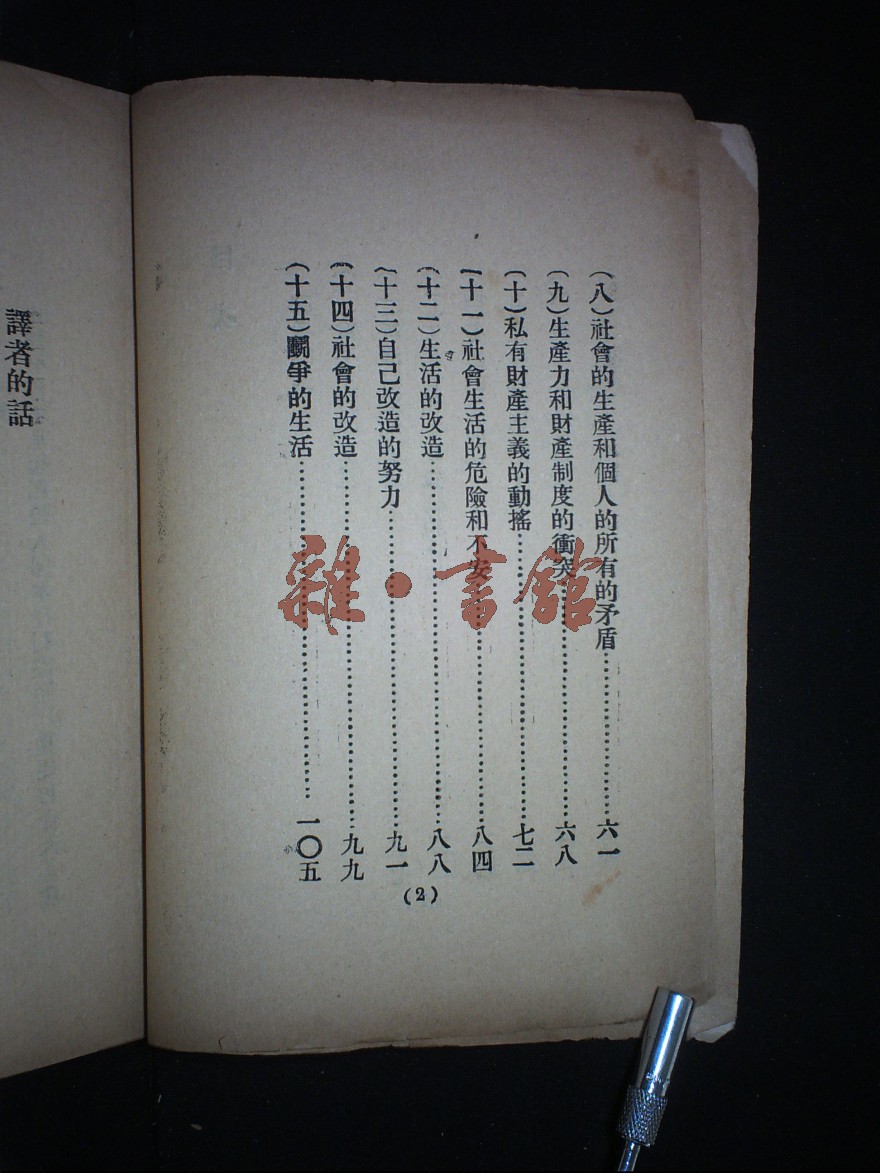 (八)社會的生產和個人的所有的矛盾……六一
(九)生產力和財產制度的衝突……六八
(十)私有財產主義的動搖……七二
(十一)社會生活的危險和不安……八四
(十二)生活的改造……八八
(十三)自己改造的努力……九一
(十四)社會的改造……九九
(十五)鬭爭的生活……一〇五
(2)
譯者的話
雜·書館